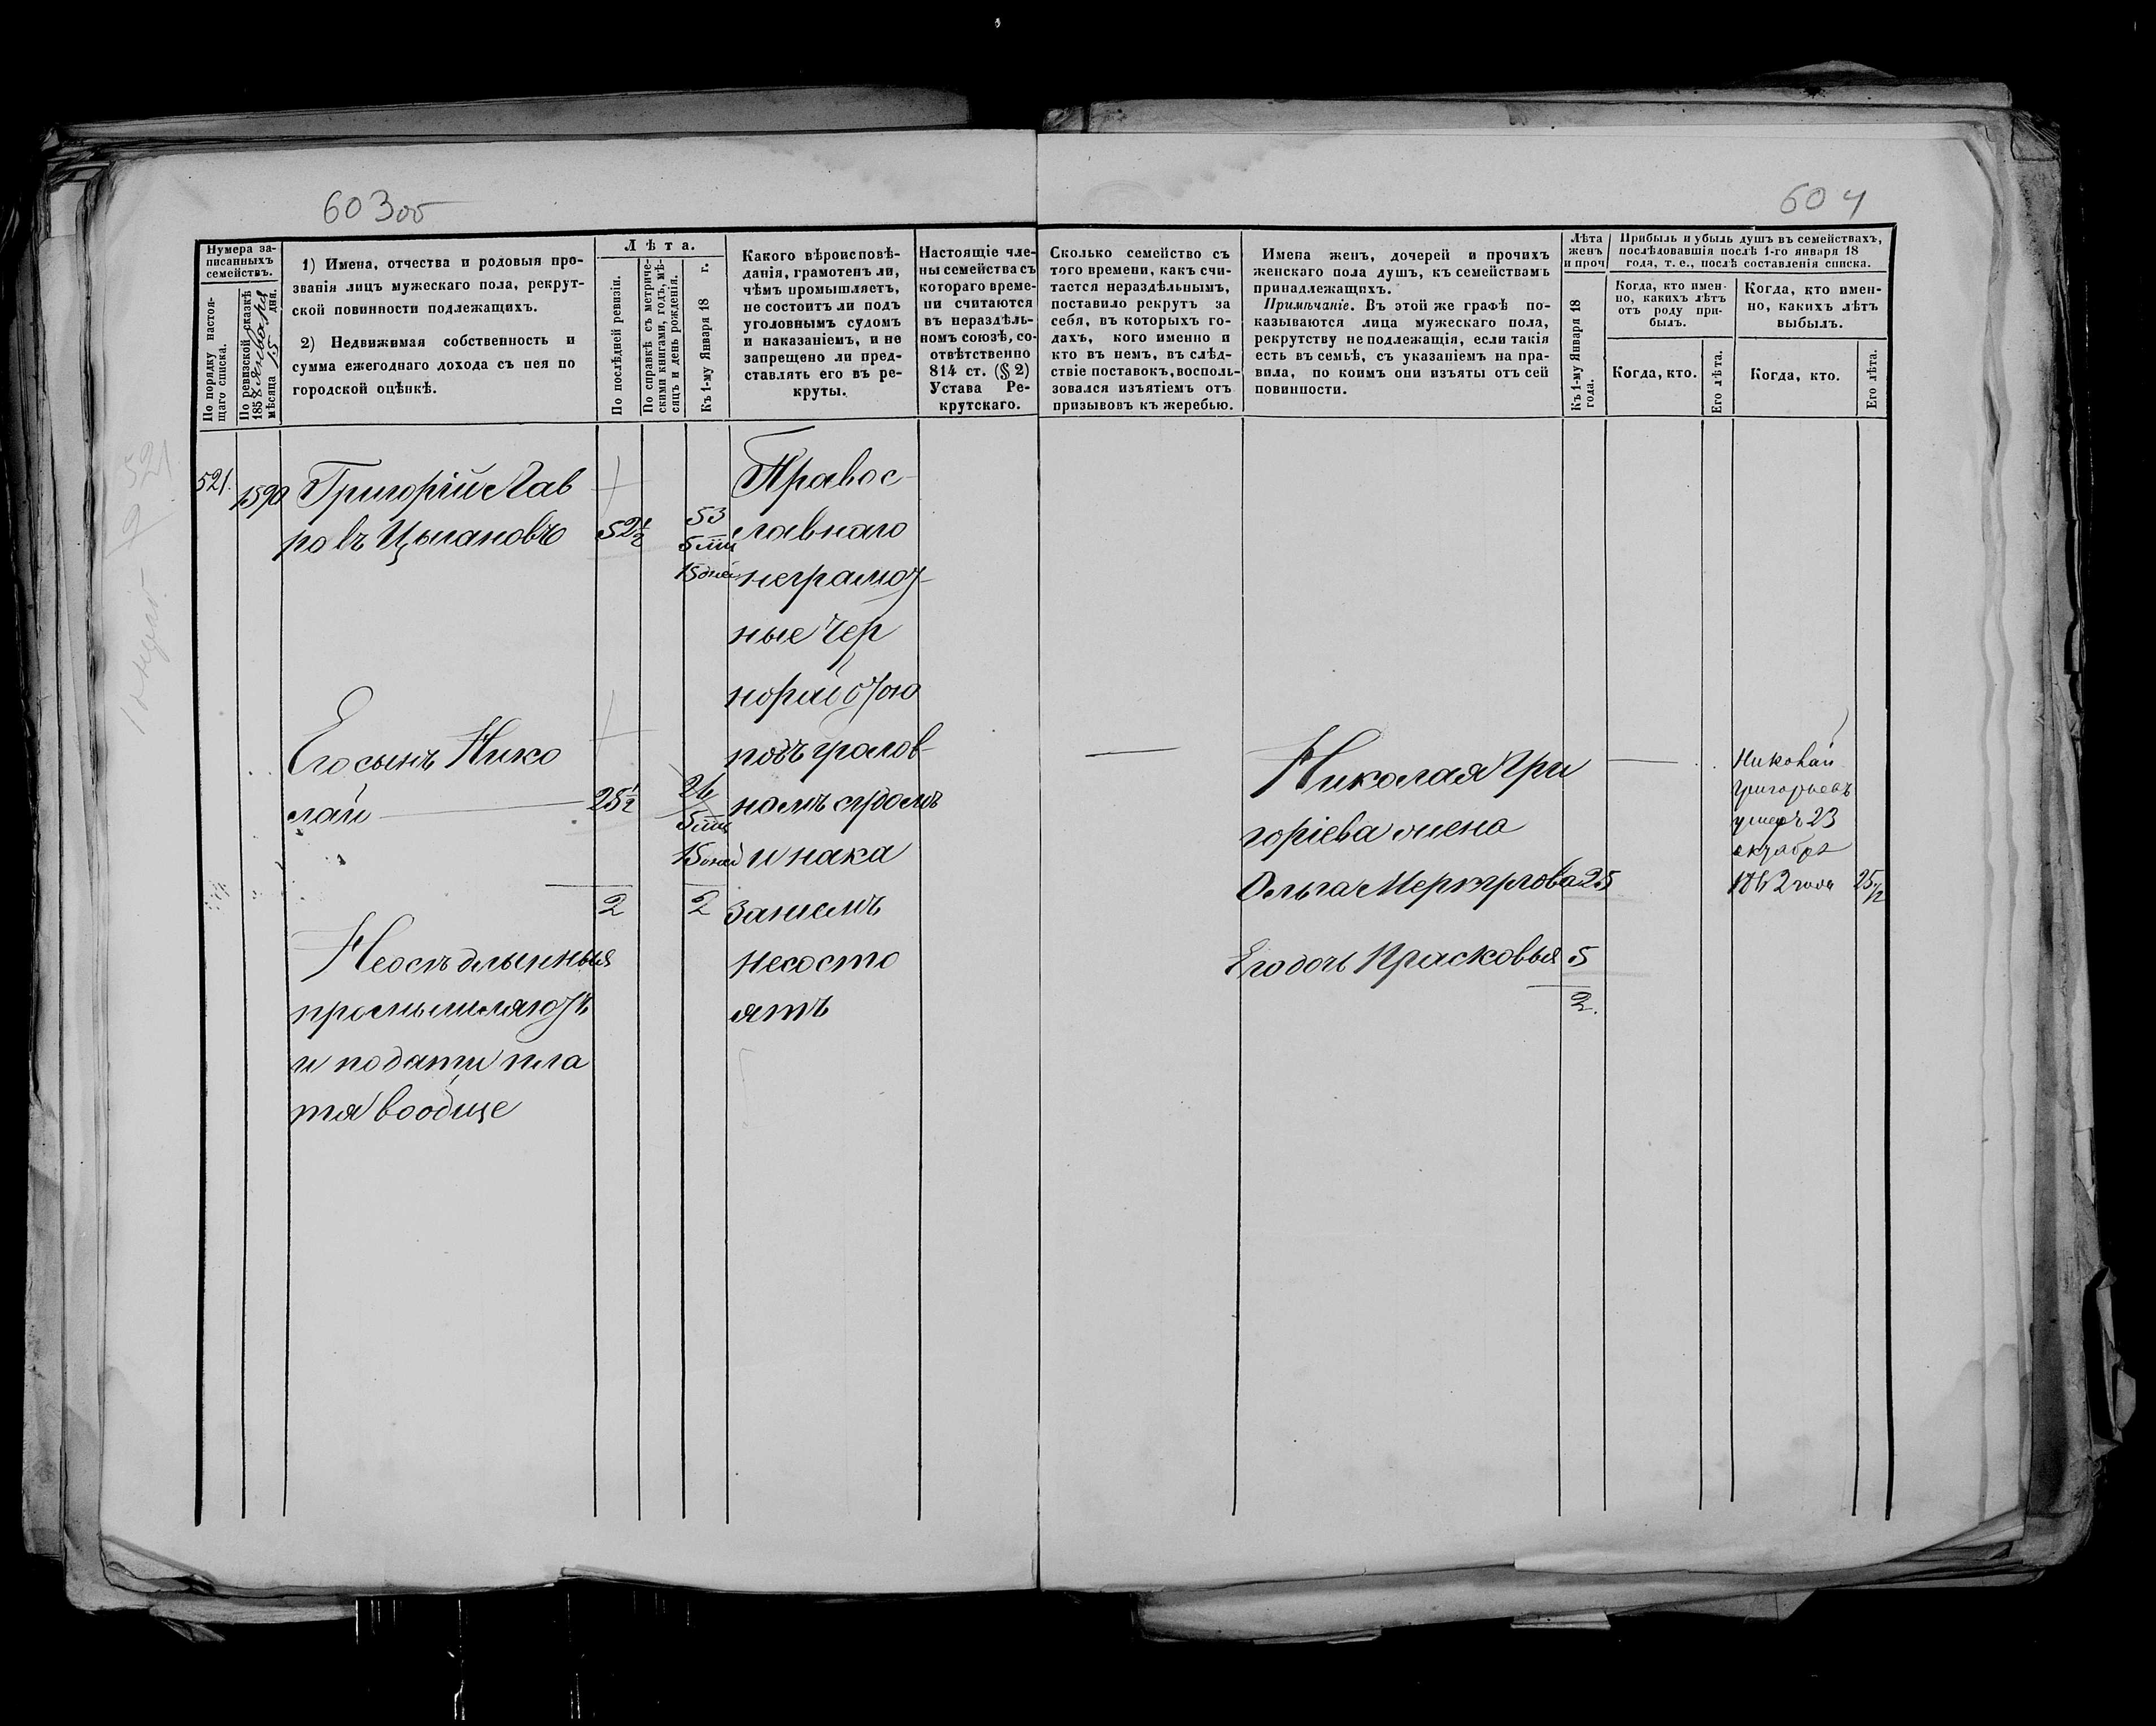 603об
604
Нумера за-
писанныхъ
семействъ.
По порядку настоя-
щаго списка.
По ревизской сказкѣ
1858 Января
мѣсяца 15 дня.
1) Имена, отчества и родовыя про-
званія лицъ мужескаго пола, рекрут-
ской повинности подлежащихъ.
2) Недвижимая собственность и
сумма ежегоднаго дохода съ нея по
городской оцѣнкѣ.
Лѣта.
По послѣдней ревизіи.
По справкѣ съ метриче-
скими книгами, годъ, мѣ-
сяцъ и день рожденія.
Къ 1-му Января 18 г.
Какого вѣроисповѣ-
данія, грамотенъ ли,
чѣмъ промышляетъ,
не состоитъ ли подъ
уголовнымъ судомъ
и наказаніемъ, и не
запрещено ли пред-
ставлять его въ ре-
круты.
Настоящіе чле-
ны семейства съ
котораго време-
ни считаются
въ нераздѣль-
номъ союзѣ, со-
отвѣтственно
814 ст. (§ 2)
Устава Ре-
крутскаго.
Сколько семейство съ
того времени, какъ счи-
тается нераздѣльнымъ,
поставило рекрутъ за
себя, въ которыхъ го-
дахъ, кого именно и
кто въ немъ, въ слѣд-
ствіе поставокъ, восполь-
зовался изъятіемъ отъ
призывовъ къ жеребью.
Имена женъ, дочерей и прочихъ
женскаго пола душъ, къ семействамъ
принадлежащихъ.
Примѣчаніе. Въ этой же графѣ по-
казываются лица мужескаго пола,
рекрутству не подлежащія, если такія
есть въ семьѣ, съ указаніемъ на пра-
вила, по коимъ они изъяты отъ сей
повинности.
Лѣта
женъ
и проч
Къ 1-му Января 18
года.
Прибыль и убыль душъ въ семействахъ,
послѣдовавшія послѣ 1-го января 18
года, т. е., послѣ составленія списка.
Когда, кто имен-
но, какихъ лѣтъ
отъ роду при-
былъ.
Когда, кто.
Его лѣта.
Когда, кто имен-
но, какихъ лѣтъ
выбылъ.
Когда, кто.
Его лѣта.
521.
521.
1590
Григорій Лав
ровъ Цыгановъ
52½
53
5 мц
15 дней
Егосынъ Нико
лай
25½
26
5 мц
15 дней
2
2
промышляютъ
и подати пла
тя вообще
Правос-
лавнаго
неграмот-
ные чер
ноработою
подъ
судомъ
и нака
заніемъ
несосто
ятъ
Николая Гри
горіева жена
Ольга 25
Егодочь Прасковья 5
2.
Николай
Григорьевъ
умеръ 23
октября
1862 года
25½